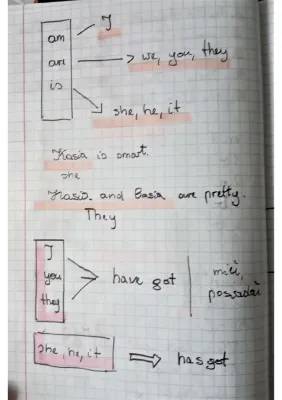 am
are
is
I
we, you, they
she, he, it
Kasia is smart.
she
Kasia and Basia are pretty.
They
I
you
they
have got
mieć,
posiadać
she, he, it
has got